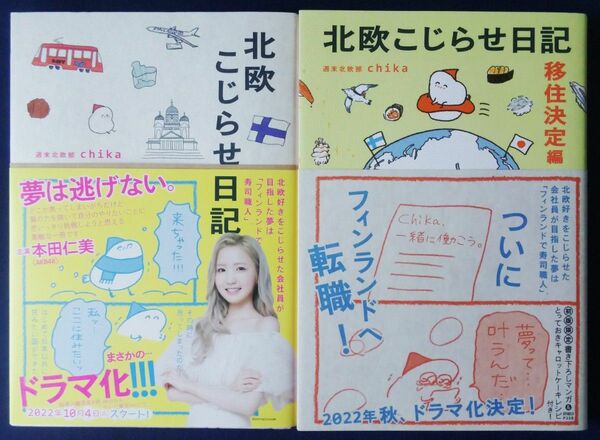 北欧
こじらせ
日記
週末北欧部 chika
北欧好きをこじらせた
会社員が
目指した夢は
「フィンランドで
寿司職人」
夢は逃げない。
主演 本田仁美
(AKB48)
来ちゃった!!!
まさかの…
ドラマ化!!!
2022年10月4日(火)スタート!
北欧こじらせ日記
移住決定編
週末北欧部 chika
北欧好きをこじらせた
会社員が目指した夢は
「フィンランドで寿司職人」
ついに
フィンランドへ
転職!
Chika、
一緒に働こう。
夢って…
叶うんだ…
初版限定 書き下ろしマンガ&
とっておきキャロットケーキレシピ
付き!
2022年秋、ドラマ化決定!